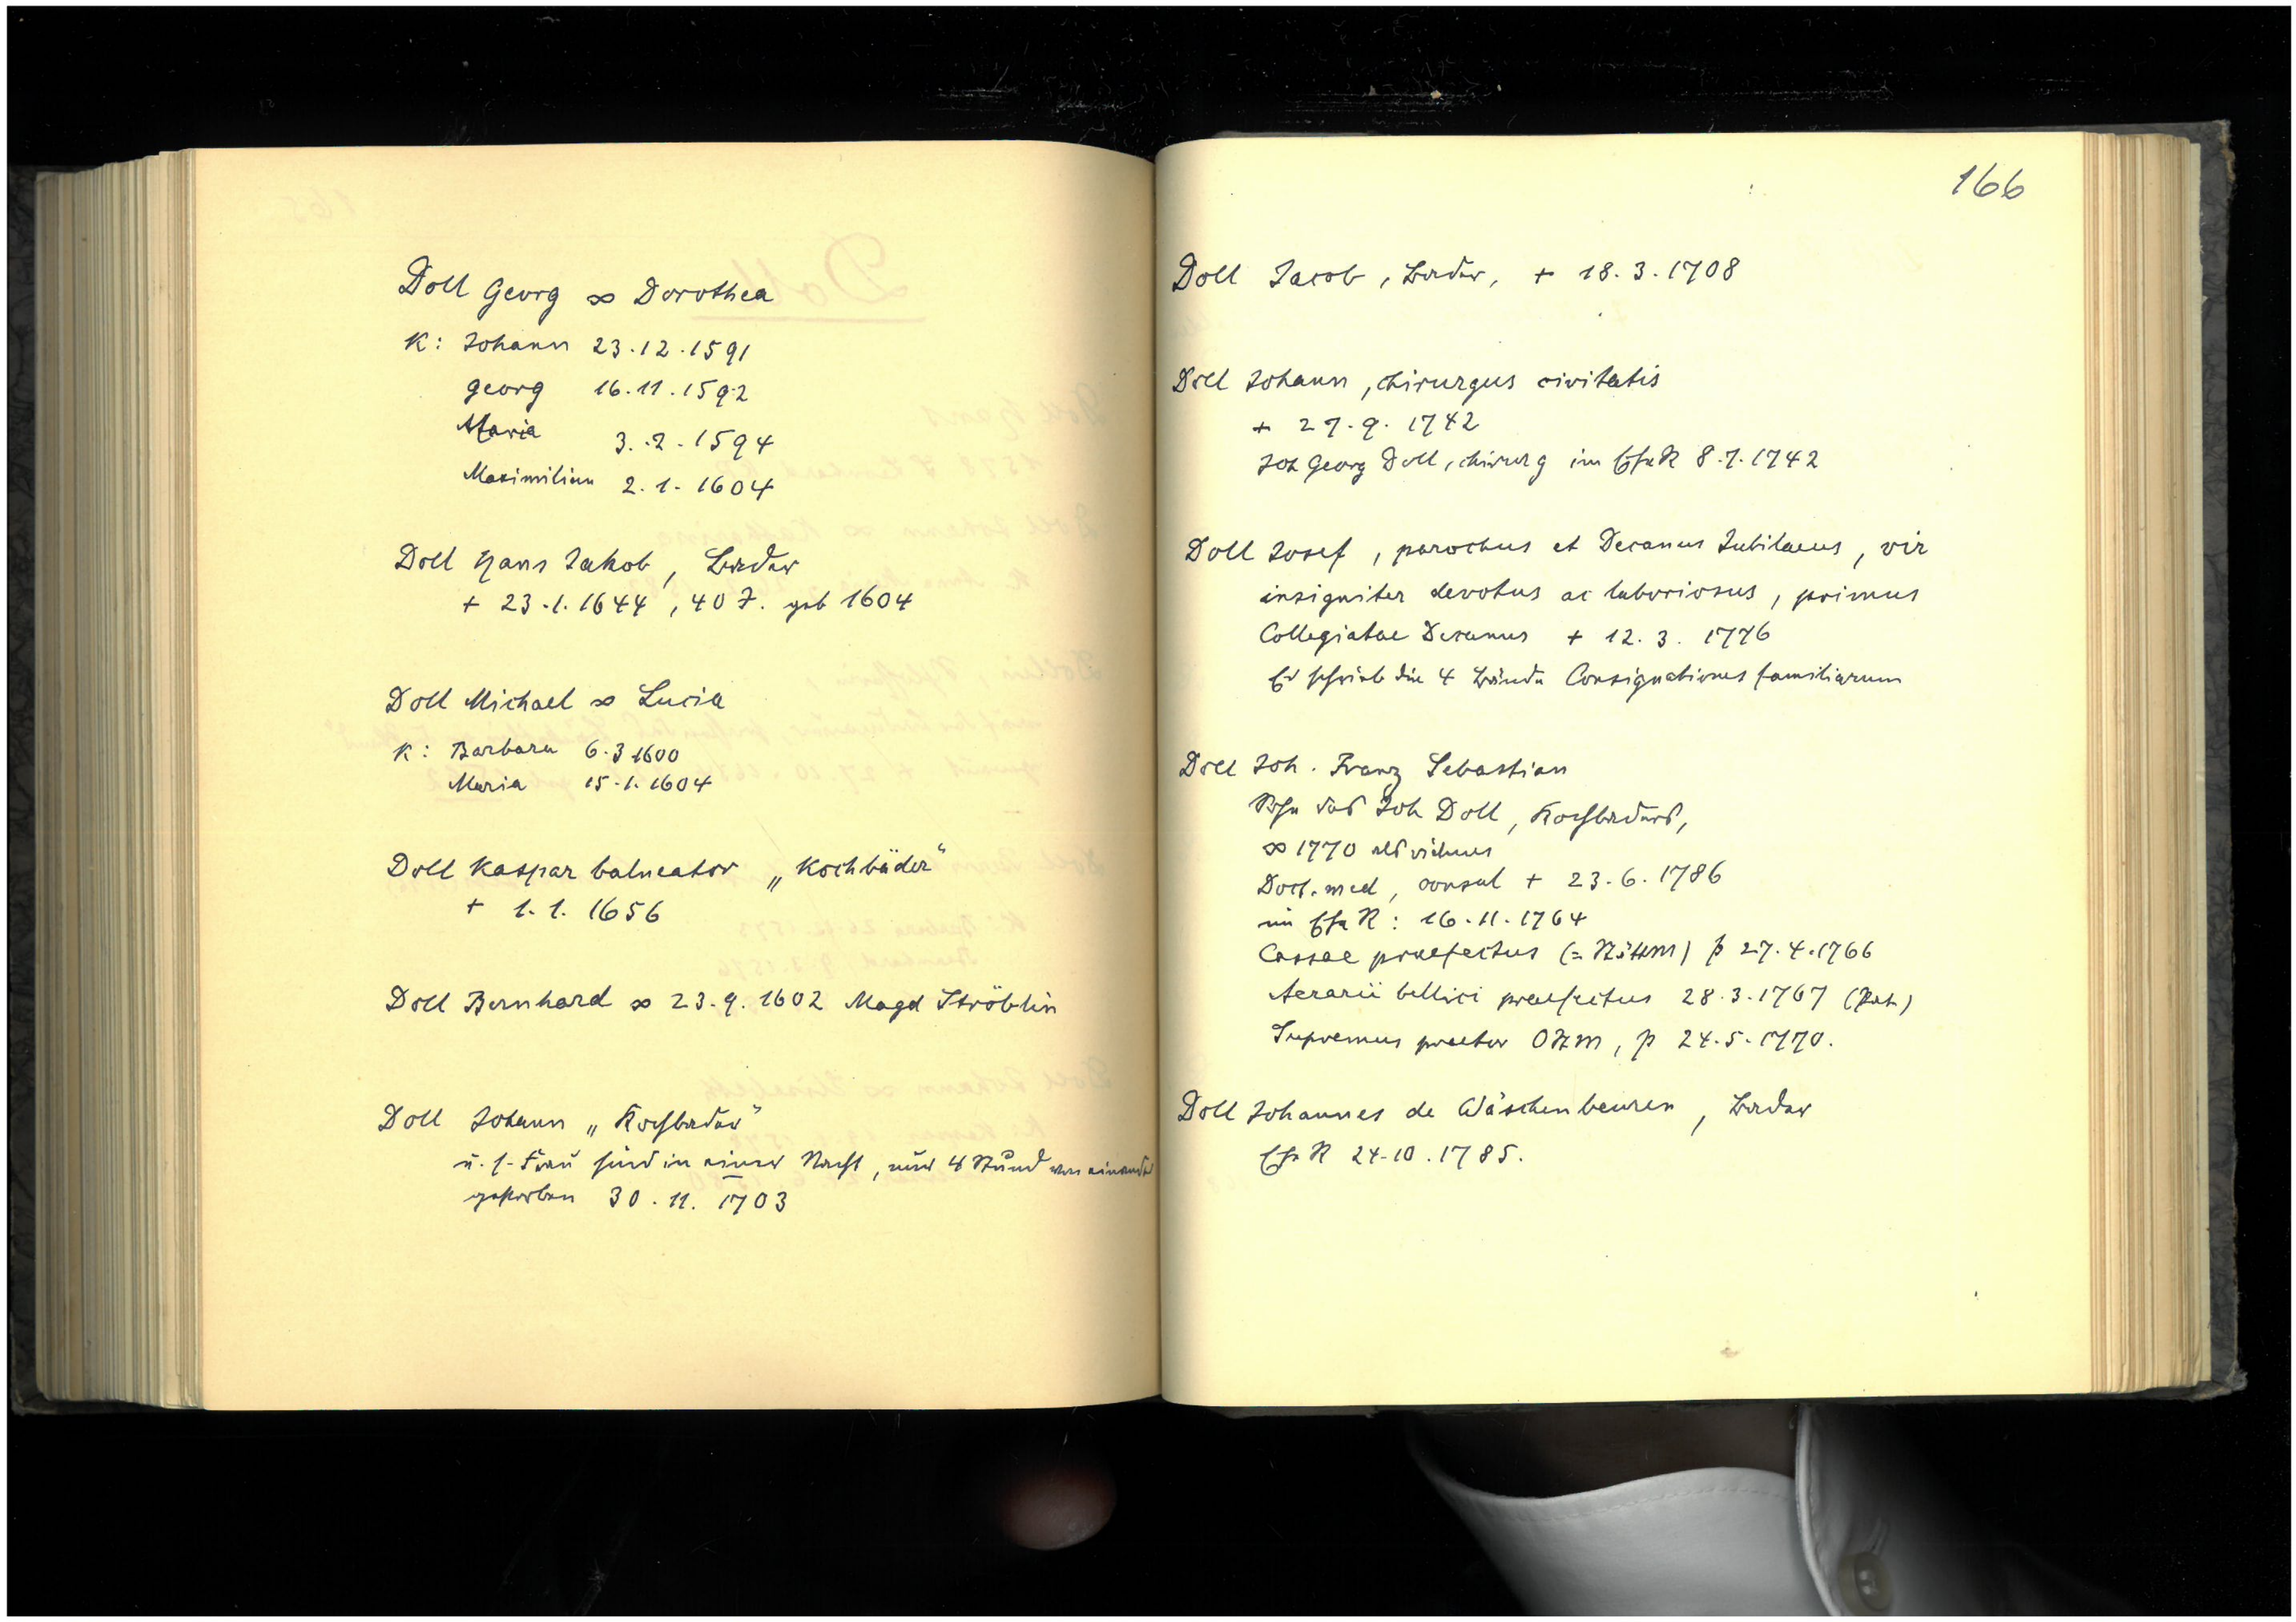 Doll Georg ∞ Dorothea
K: Johann 23.12.1591
Georg 16.11.1592
Maria 3.2.1594
Maximilian 2.1.1604
Doll Hans Jakob, Bader
+ 23.1.1644, 40 J. geb 1604
Doll Michael ∞ Lucia
K: Barbara 6.3 1600
Maria 15.1.1604
Doll Kaspar balneator „Kochbäder"
+ 1.1.1656
Doll Bernhard ∞ 23.9.1602 Magd Ströblin
Doll Johann „Kochbader"
u. s. Frau sind in einer Nacht, nur 4 Stund von einander
gestorben 30.11.1703
166
Doll Jacob, Bader, + 18.3.1708
Doll Johann, chirurgus civitatis
+ 27.9.1742
Joh Georg Doll, chirurg im EheR 8.7.1742
Doll Josef, parochus et Decanus Jubilaeus, vir
insigniter devotus ac laboriosus, primus
Collegiatae Decanus + 12.3.1776
Er schrieb die 4 Bände Consignationes familiarum
Doll Joh. Franz Sebastian
Sohn des Joh Doll, Kochbaders,
∞ 1770 als viduus
Doct. med, consul + 23.6.1786
im EheR: 16.11.1764
Cassae praefectus (= StättM) p 27.4.1766
Aerarii bellici praefectus 28.3.1767 (Pat.)
Supremus praetor OStM, p 24.5.1770.
Doll Johannes de Wäschenbeuren, Bader
EheR 24.10.1785.